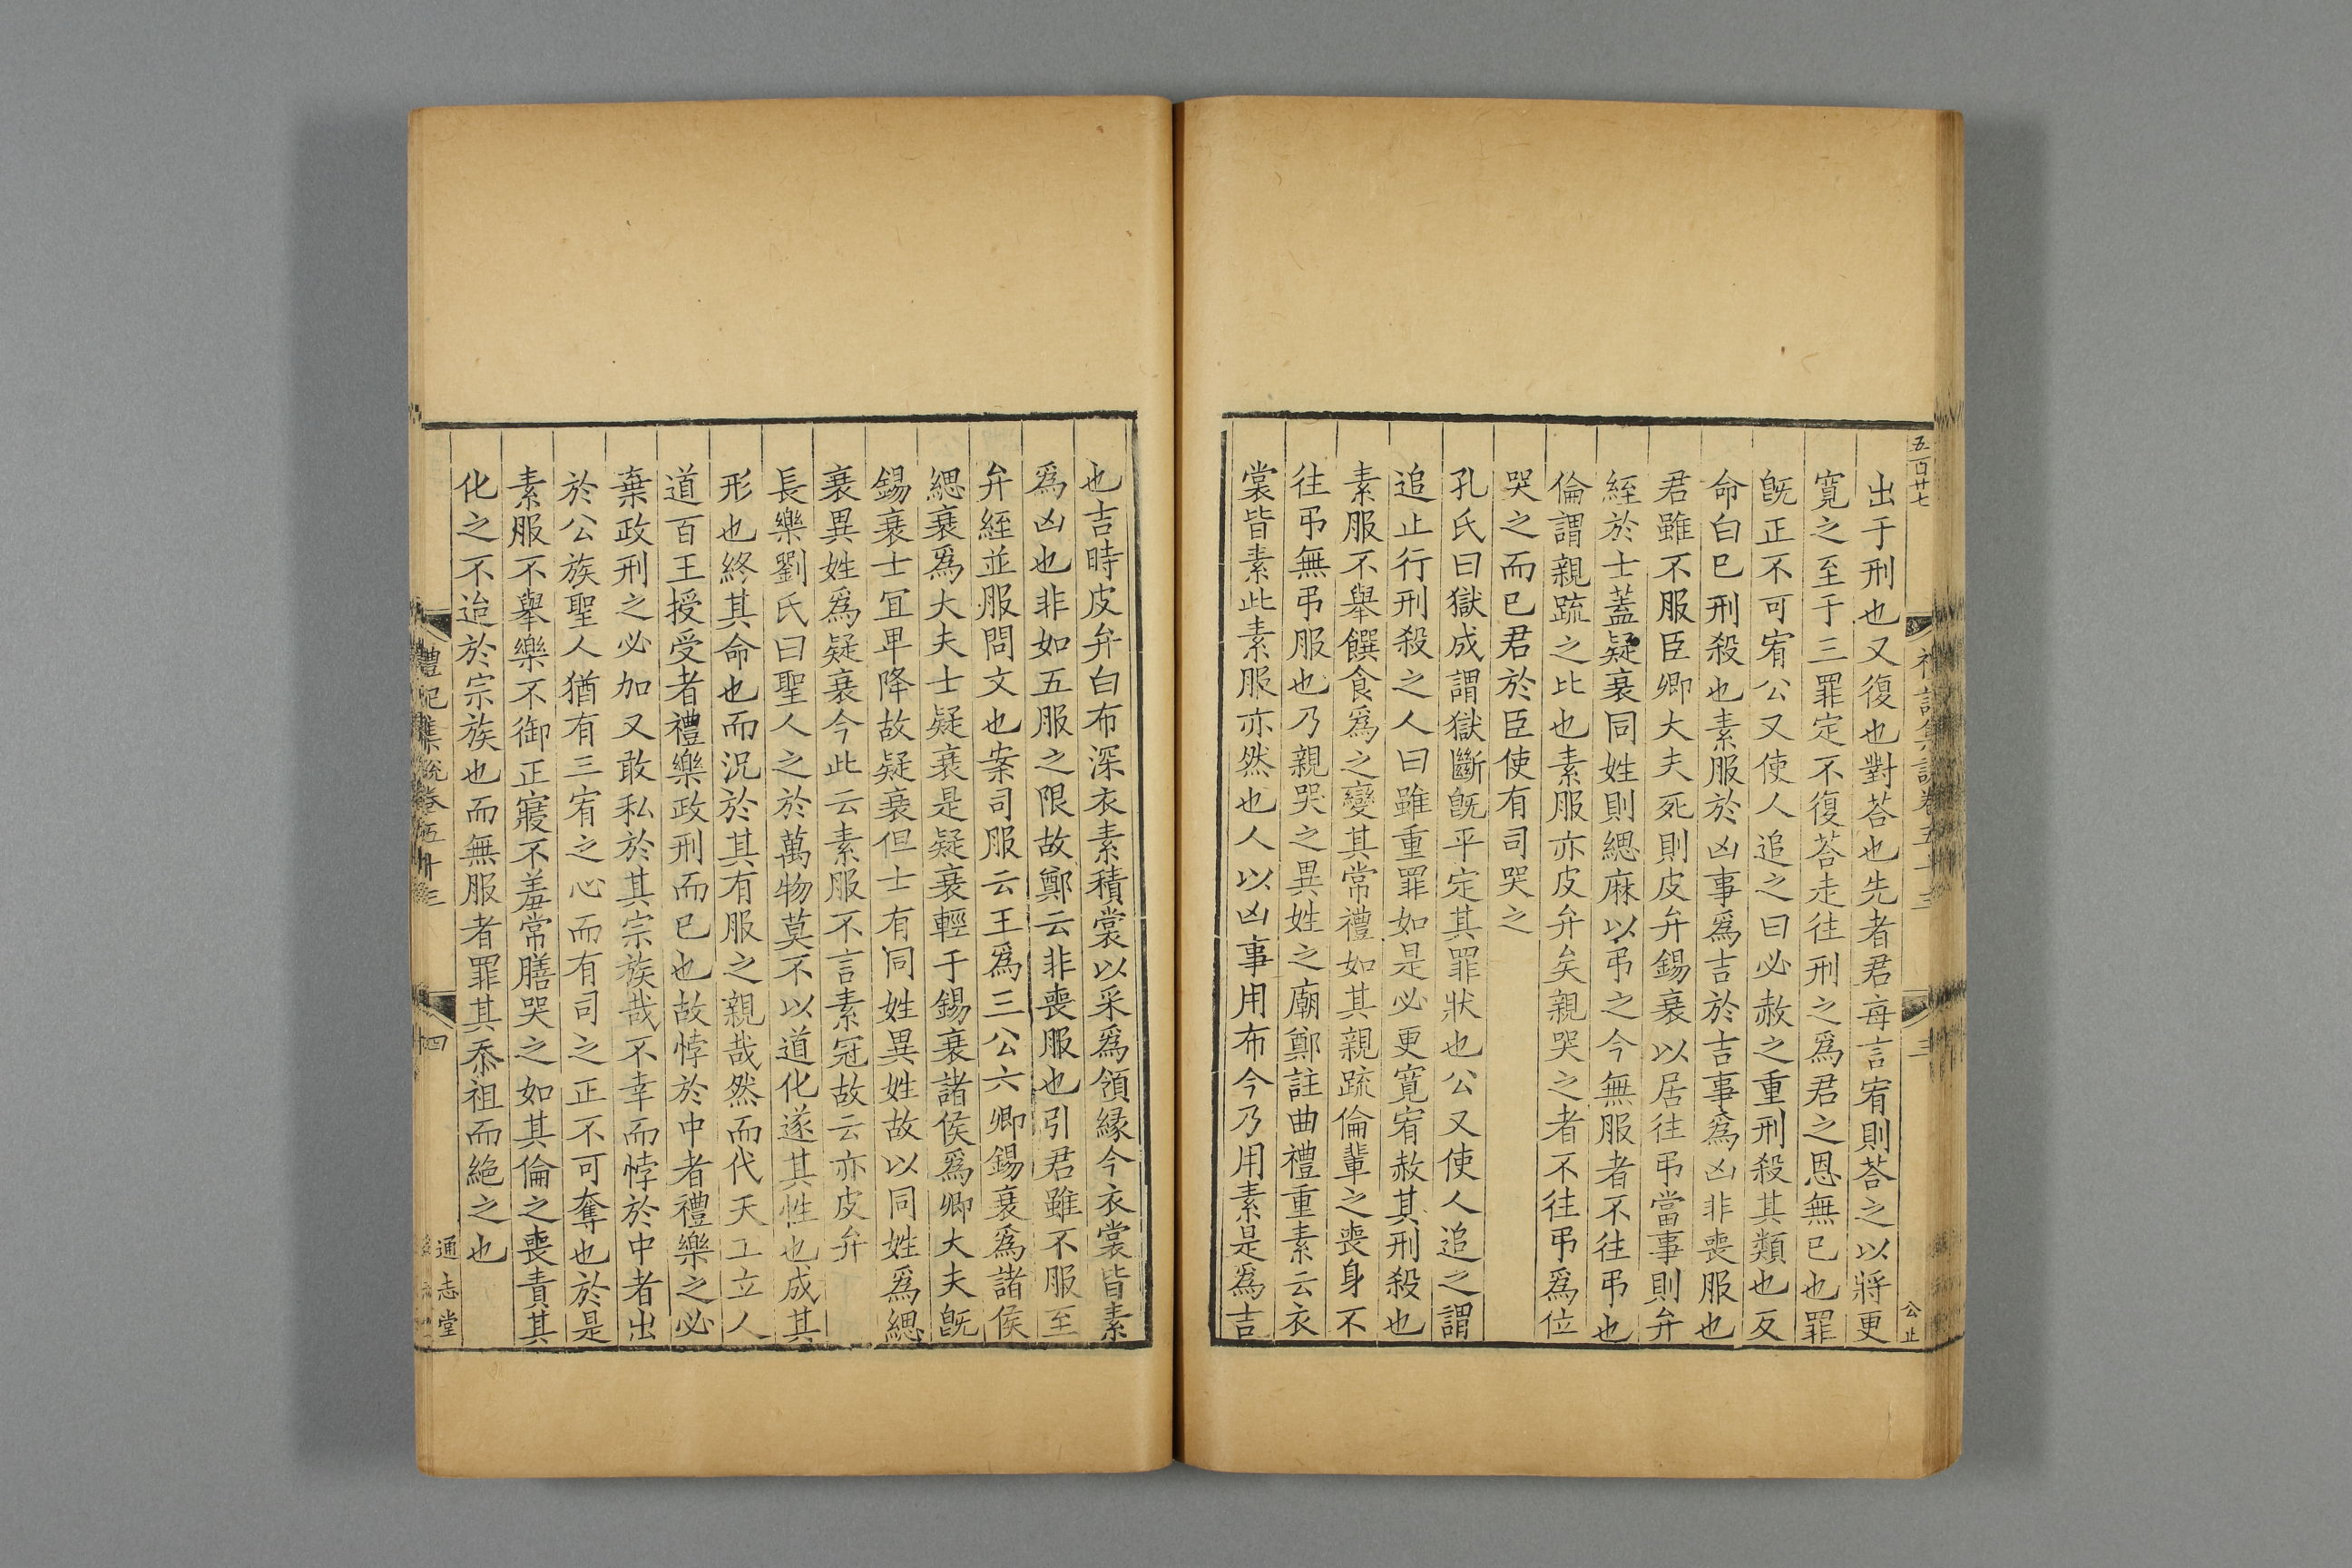 五百廿七
出于刑也又復也對荅也先者君每言宥則荅之以將更
寬之至于三罪定不復荅走往刑之爲君之恩無已也罪
旣正不可宥公又使人追之曰必赦之重刑殺其類也反
命白已刑殺也素服於凶事爲吉於吉事爲凶非喪服也
君雖不服臣卿大夫死則皮弁錫衰以居往弔當事則弁
絰於士蓋疑衰同姓則緦麻以弔之今無服者不往弔也
倫謂親疏之比也素服亦皮弁矣親哭之者不往弔爲位
哭之而已君於臣使有司哭之
孔氏曰獄成謂獄斷旣平定其罪狀也公又使人追之謂
追止行刑殺之人曰雖重罪如是必更寬宥赦其刑殺也
素服不舉饌食爲之變其常禮如其親疏倫輩之喪身不
往弔無弔服也乃親哭之異姓之廟鄭註曲禮重素云衣
裳皆素此素服亦然也人以凶事用布今乃用素是爲吉
公止
也吉時皮弁白布深衣素積裳以采爲領緣今衣裳皆素
爲凶也非如五服之限故鄭云非喪服也引君雖不服至
弁絰並服問文也案司服云王爲三公六卿錫衰爲諸侯
緦衰爲大夫士疑衰是疑衰輕于錫衰諸侯爲卿大夫旣
錫衰士宜卑降故疑衰但士有同姓異姓故以同姓爲緦
衰異姓爲疑衰今此云素服不言素冠故云亦皮弁
長樂劉氏曰聖人之於萬物莫不以道化遂其性也成其
形也終其命也而況於其有服之親哉然而代天工立人
道百王授受者禮樂政刑而已也故悖於中者禮樂之必
棄政刑之必加又敢私於其宗族哉不幸而悖於中者出
於公族聖人猶有三宥之心而有司之正不可奪也於是
素服不舉樂不御正寢不羞常膳哭之如其倫之喪責其
化之不迨於宗族也而無服者罪其忝祖而絕之也
禮記集說卷五十三
四
通志堂